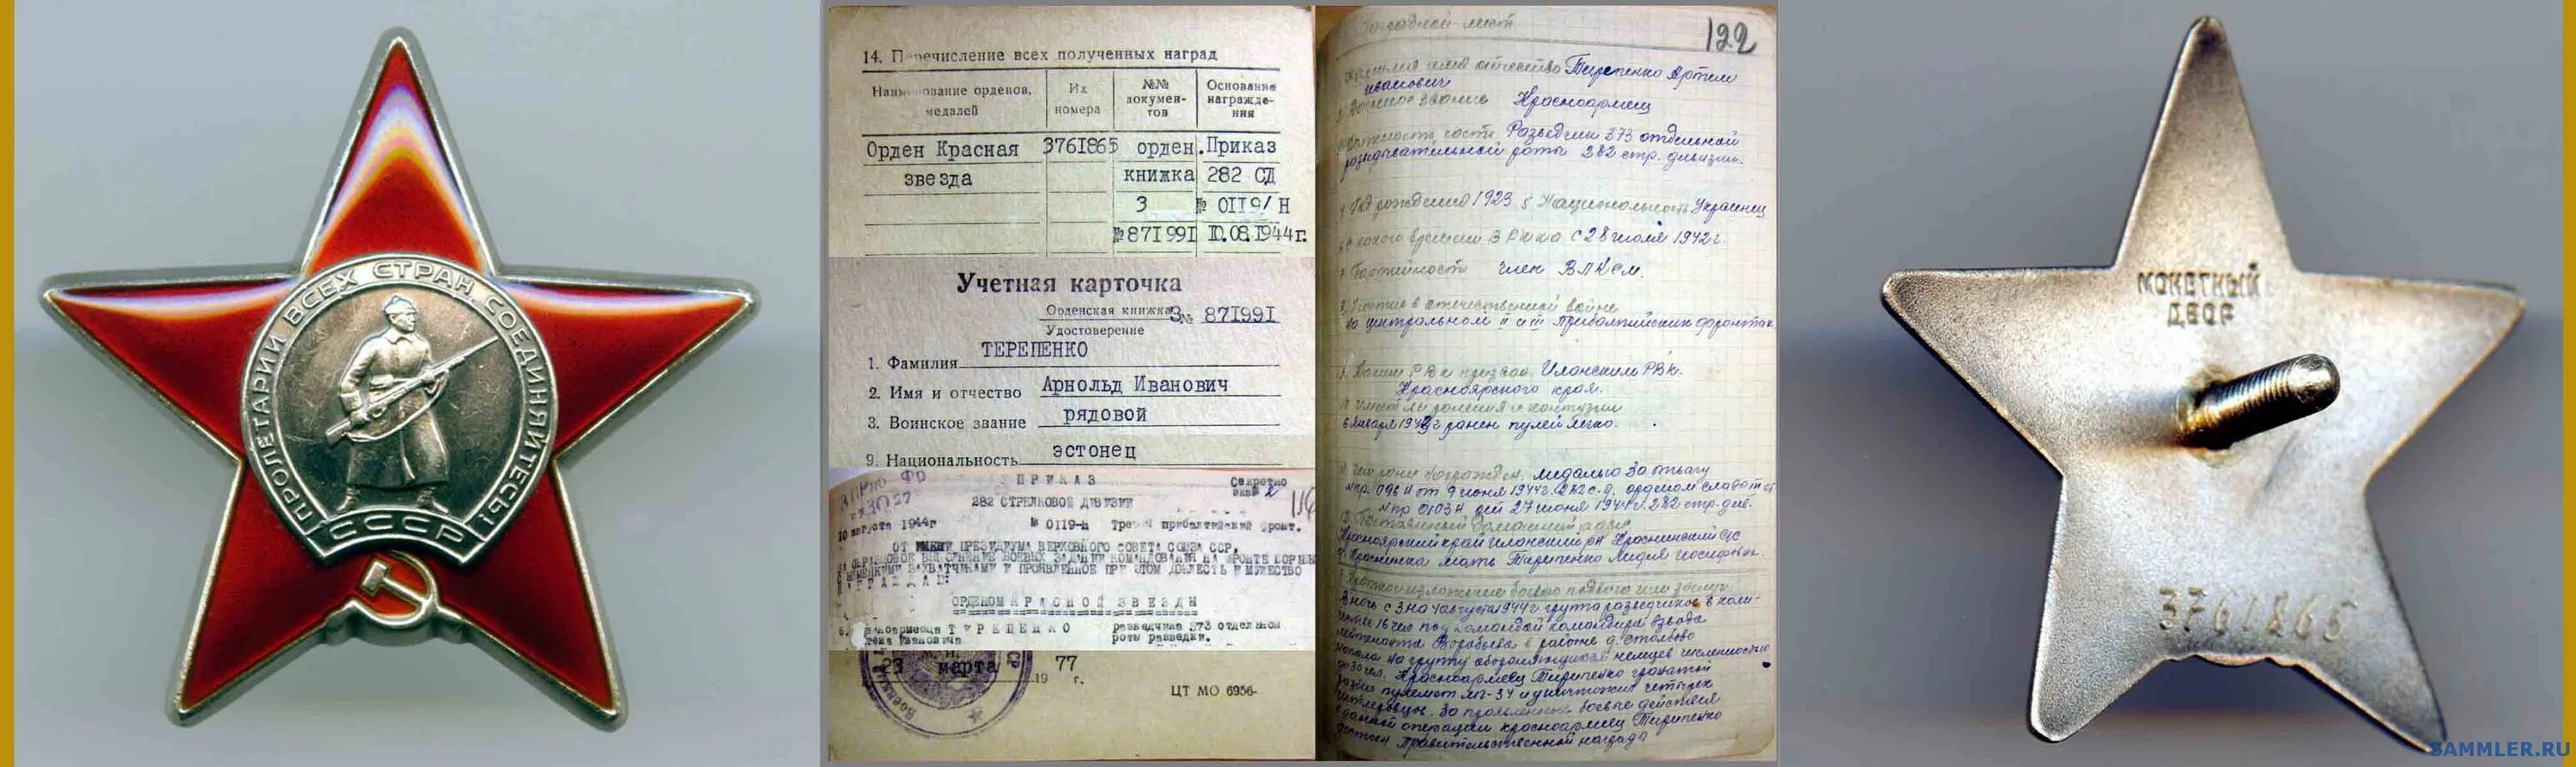 ПРОЛЕТАРИИ ВСЕХ СТРАН, СОЕДИНЯЙТЕСЬ!
СССР
14. Перечисление всех полученных наград
Наименование орденов, медалей
Их номера
№№ докумен-тов
Основание награжде-ния
Орден Красная 3761865 орден. Приказ
звезда книжка 282 СД
3 № 0119/Н
№871991 10.08.1944г.
Учетная карточка
Орденская книжка З № 871991
Удостоверение
1. Фамилия ТЕРЕПЕНКО
2. Имя и отчество Арнольд Иванович
3. Воинское звание рядовой
9. Национальность эстонец
ПРИКАЗ Секретно
282 СТРЕЛКОВОЙ ДИВИЗИИ
10 августа 1944г № 0119-н Третий прибалтийский фронт.
ОТ ИМЕНИ ПРЕЗИДИУМА ВЕРХОВНОГО СОВЕТА СОЮЗА ССР,
ОБРАЗЦОВОЕ ВЫПОЛНЕНИЕ БОЕВЫХ ЗАДАНИЙ КОМАНДОВАНИЯ НА ФРОНТЕ БОРЬБЫ
НЕМЕЦКИМИ ЗАХВАТЧИКАМИ И ПРОЯВЛЕННОЕ ПРИ ЭТОМ ДОБЛЕСТЬ И МУЖЕСТВО
ОРДЕНОМ КРАСНОЙ ЗВЕЗДЫ
6. ТИРЕПЕНКО разведчика 373 отдельной
Ивановича роты разведки.
23 марта 1977 г.
ЦТ МО 6956-
122
Фамилия имя отчество Тирепенко Артем
Иванович
Военное звание Красноармеец
Должность, часть Разведчик 373 отдельной
разведывательной роты 282 стр. дивизии.
Год рождения 1923 5. Национальность Украинец
С какого времени в РККА с 28 июля 1942 г.
Партийность член ВЛКСМ.
Участие в отечественной войне
на центральном II и III Прибалтийских фронтах
Каким РВК призван Иланским РВК.
Красноярского края.
Имеет ли ранения и контузии
6 января 1943 г ранен пулей легко.
Чем ранее награжден, медалью За отвагу
пр. 096 Н от 9 июня 1944г. 282 с.д. орденом слава III ст
пр 0103Н дей 27 июня 1944г. 282 стр. див.
Постоянный домашний адрес
Красноярский край Иланский рн
мать Тирипенко Лидия Иосифовна.
Краткое изложение боевого подвига или заслуг
В ночь с 3 на 4 августа 1944 г. группа разведчиков в коли-
честве 16 чел под командой командира взвода
лейтенанта Воробьева в районе д. Столбово
напала на группу обороняющихся немцев численностью
до 30 чел. Красноармеец Тирипенко гранатой
пулемет МГ-34 и уничтожил четырех
гитлеровцев. За проявленные боевые действия
в данной операции красноармеец Тирипенко
достоен правительственной награда
МОНЕТНЫЙ
ДВОР
3761865
SAMMLER.RU